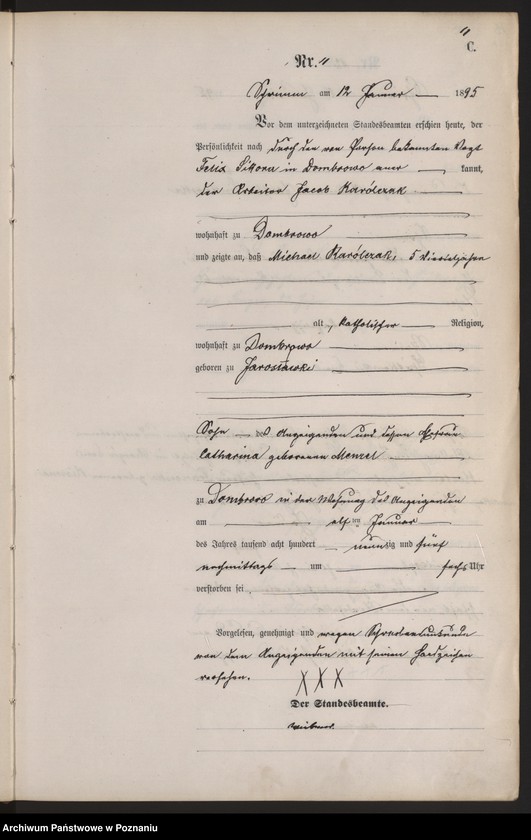 11
C.
Nr. 11
Schrimm am 12 Januar 1895
Vor dem unterzeichneten Standesbeamten erschien heute, der
Persönlichkeit nach durch den von Person bekannten Vogt
Felix Sikora in Dombrowo aner kannt,
der Arbeiter Jacob Karólczak
wohnhaft zu Dombrowo
und zeigte an, daß Michael Karólczak, 5 Vierteljahre
alt, katholischer Religion,
wohnhaft zu Dombrowo
geboren zu Jarosławki
Sohn des Anzeigenden und dessen Ehefrau
Catharina geborenen Menzel
zu Dombrowo in der Wohnung des Anzeigenden
am elf ten Januar
des Jahres tausend acht hundert neunzig und fünf
nachmittags um sechs Uhr
verstorben sei.
Vorgelesen, genehmigt und wegen Schreibensunkunde
von dem Anzeigenden mit seinen Handzeichen
versehen.
XXX
Der Standesbeamte.
Archiwum Państwowe w Poznaniu